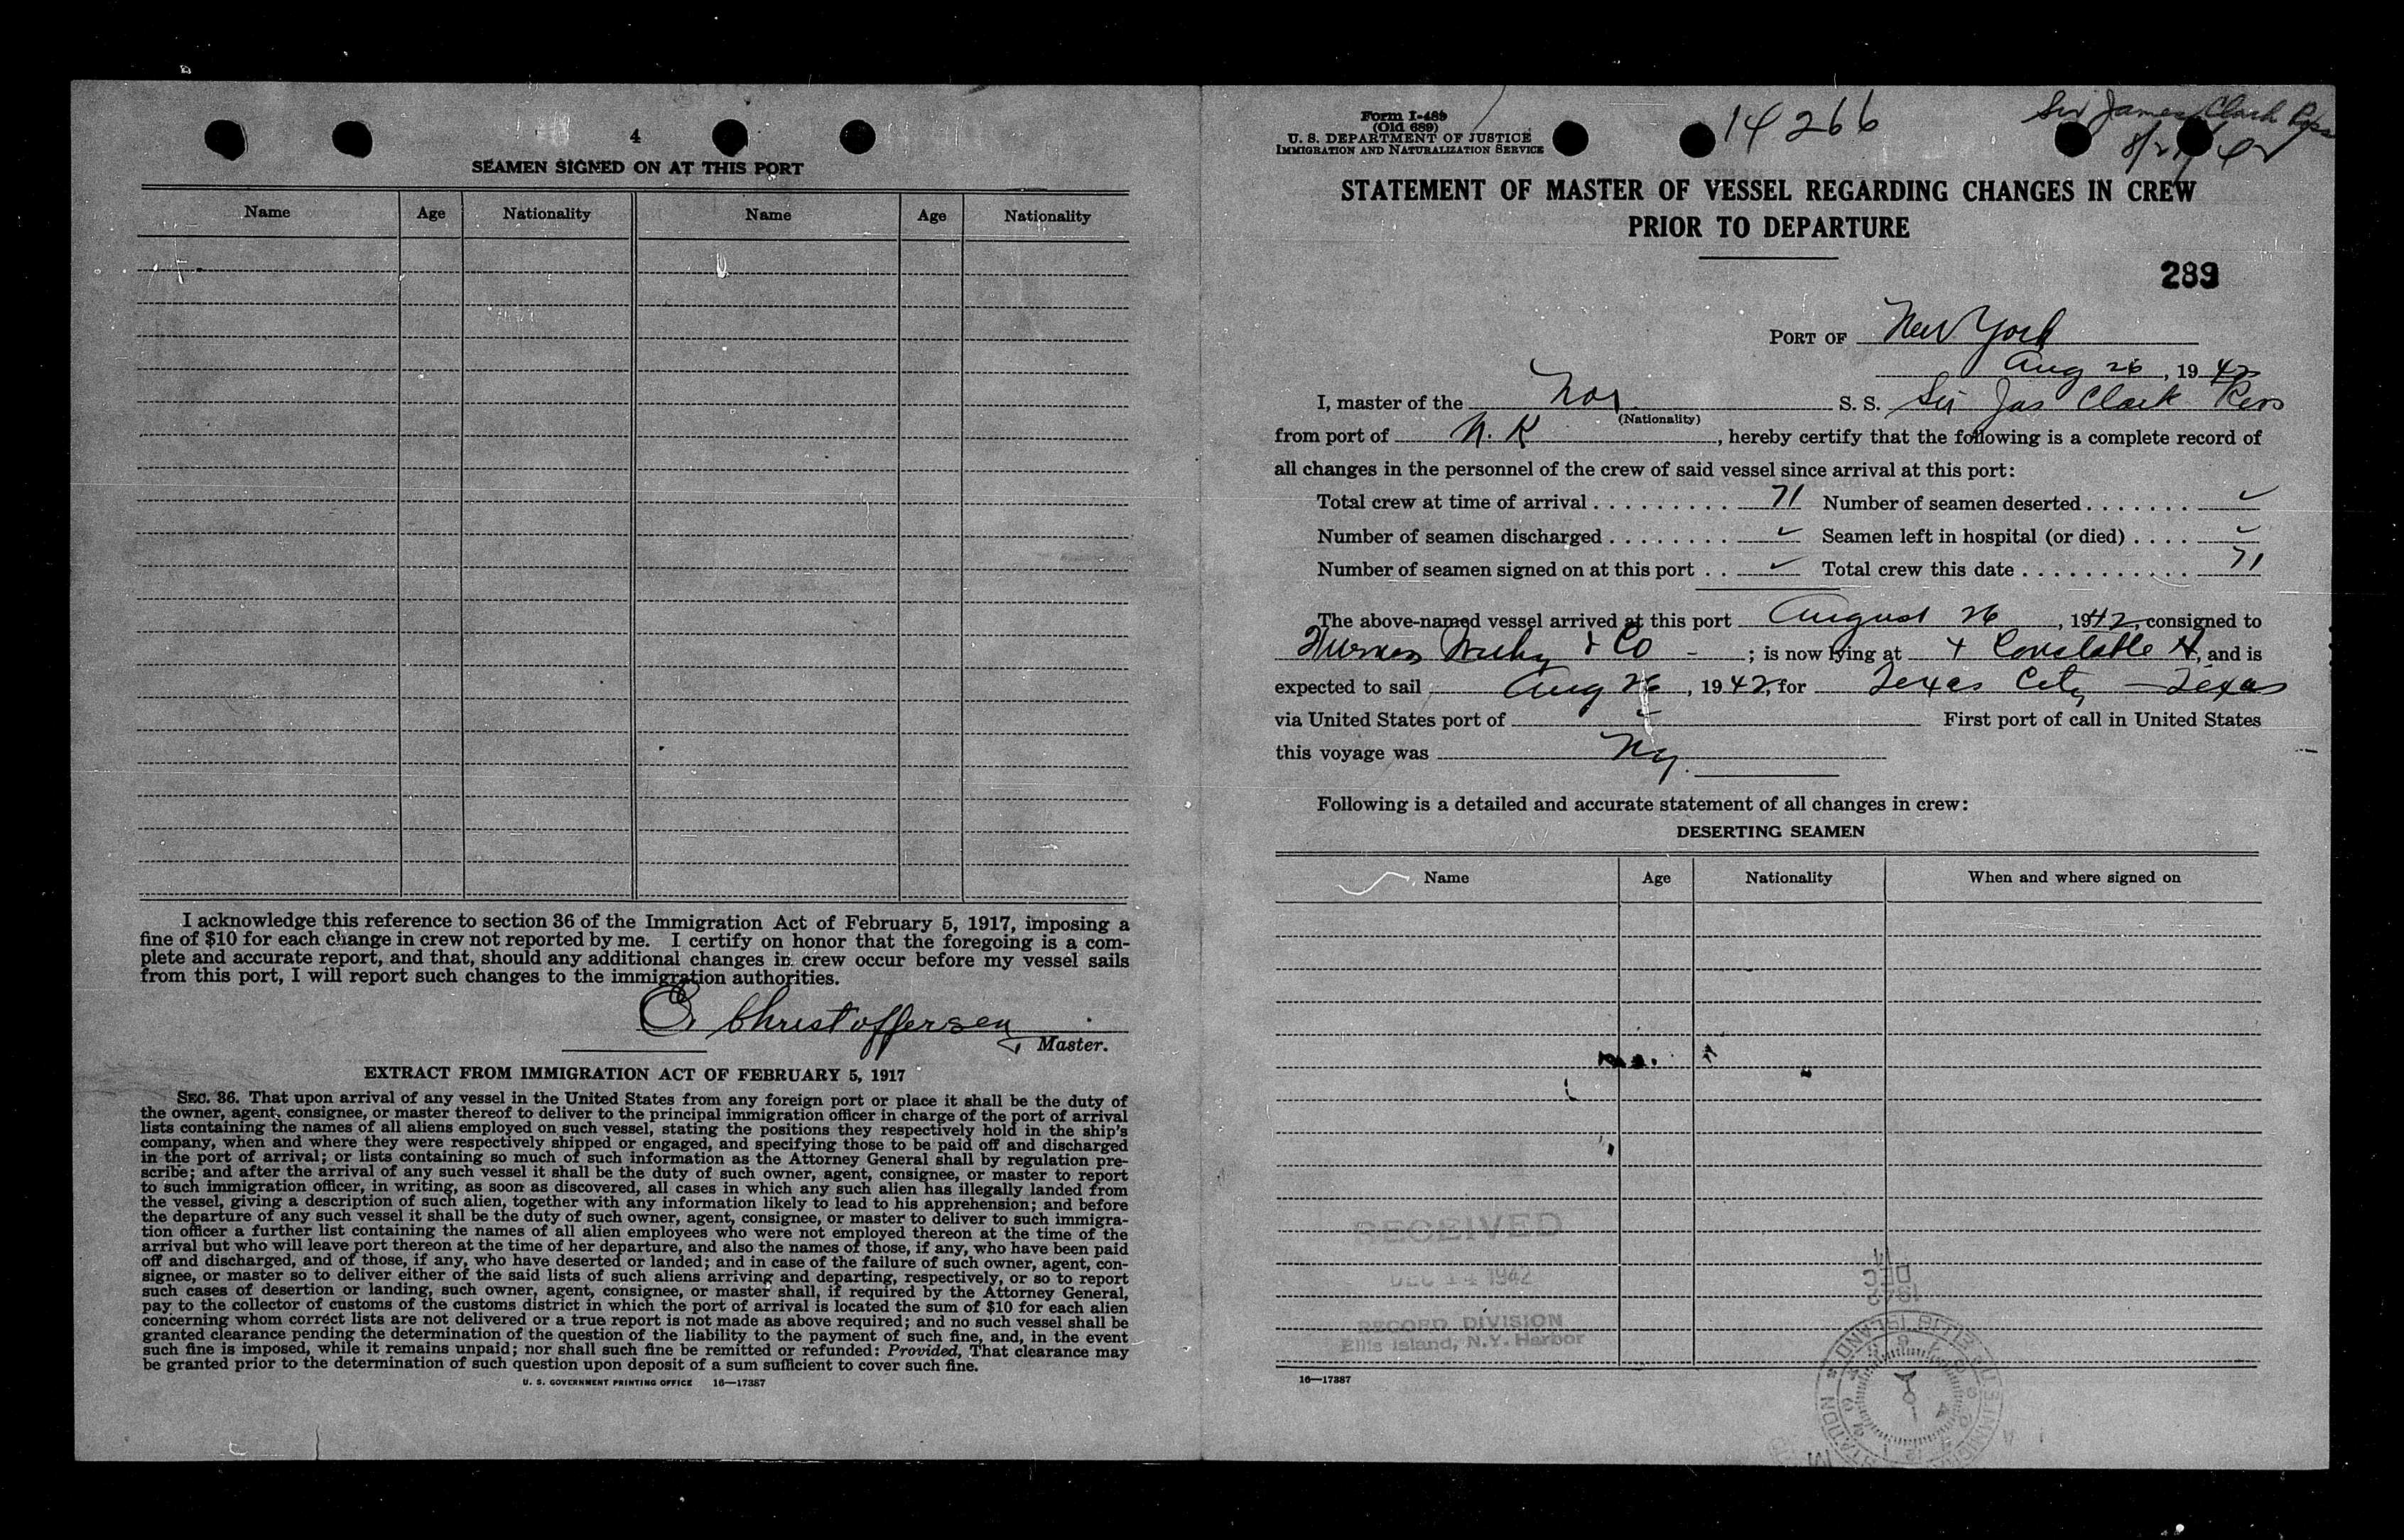 4
SEAMEN SIGNED ON AT THIS PORT
Name Age Nationality Name Age Nationality
I acknowledge this reference to section 36 of the Immigration Act of February 5, 1917, imposing a
fine of $10 for each change in crew not reported by me. I certify on honor that the foregoing is a com-
plete and accurate report, and that, should any additional changes in crew occur before my vessel sails
from this port, I will report such changes to the immigration authorities.
E. Christoffersen
, Master.
EXTRACT FROM IMMIGRATION ACT OF FEBRUARY 5, 1917
SEC. 36. That upon arrival of any vessel in the United States from any foreign port or place it shall be the duty of
the owner, agent, consignee, or master thereof to deliver to the principal immigration officer in charge of the port of arrival
lists containing the names of all aliens employed on such vessel, stating the positions they respectively hold in the ship's
company, when and where they were respectively shipped or engaged, and specifying those to be paid off and discharged
in the port of arrival; or lists containing so much of such information as the Attorney General shall by regulation pre-
scribe; and after the arrival of any such vessel it shall be the duty of such owner, agent, consignee, or master to report
to such immigration officer, in writing, as soon as discovered, all cases in which any such alien has illegally landed from
the vessel, giving a description of such alien, together with any information likely to lead to his apprehension; and before
the departure of any such vessel it shall be the duty of such owner, agent, consignee, or master to deliver to such immigra-
tion officer a further list containing the names of all alien employees who were not employed thereon at the time of the
arrival but who will leave port thereon at the time of her departure, and also the names of those, if any, who have been paid
off and discharged, and of those, if any, who have deserted or landed; and in case of the failure of such owner, agent, con-
signee, or master so to deliver either of the said lists of such aliens arriving and departing, respectively, or so to report
such cases of desertion or landing, such owner, agent, consignee, or master shall, if required by the Attorney General,
pay to the collector of customs of the customs district in which the port of arrival is located the sum of $10 for each alien
concerning whom correct lists are not delivered or a true report is not made as above required; and no such vessel shall be
granted clearance pending the determination of the question of the liability to the payment of such fine, and, in the event
such fine is imposed, while it remains unpaid; nor shall such fine be remitted or refunded: Provided, That clearance may
be granted prior to the determination of such question upon deposit of a sum sufficient to cover such fine.
U. S. GOVERNMENT PRINTING OFFICE 16—17387
Form I-489
(Old 689)
U. S. DEPARTMENT OF JUSTICE
IMMIGRATION AND NATURALIZATION SERVICE
14266
Sir James Clark Ross
STATEMENT OF MASTER OF VESSEL REGARDING CHANGES IN CREW
PRIOR TO DEPARTURE
289
PORT OF New York
Aug 26, 1942
I, master of the Nor S. S. Sir Jas Clark Ross
(Nationality)
from port of N. K, hereby certify that the following is a complete record of
all changes in the personnel of the crew of said vessel since arrival at this port:
Total crew at time of arrival 71 Number of seamen deserted ✓
Number of seamen discharged ✓ Seamen left in hospital (or died) ✓
Number of seamen signed on at this port ✓ Total crew this date 71
The above-named vessel arrived at this port August 26, 1942, consigned to
Furness Withy & Co - ; is now lying at Constable H, and is
expected to sail Aug 26, 1942, for Texas City — Texas
via United States port of ✓ First port of call in United States
this voyage was Ny.
Following is a detailed and accurate statement of all changes in crew:
DESERTING SEAMEN
Name Age Nationality When and where signed on
RECEIVED
DEC 14 1942
RECORD DIVISION
Ellis Island, N.Y. Harbor
1942
DEC
14
16—17387